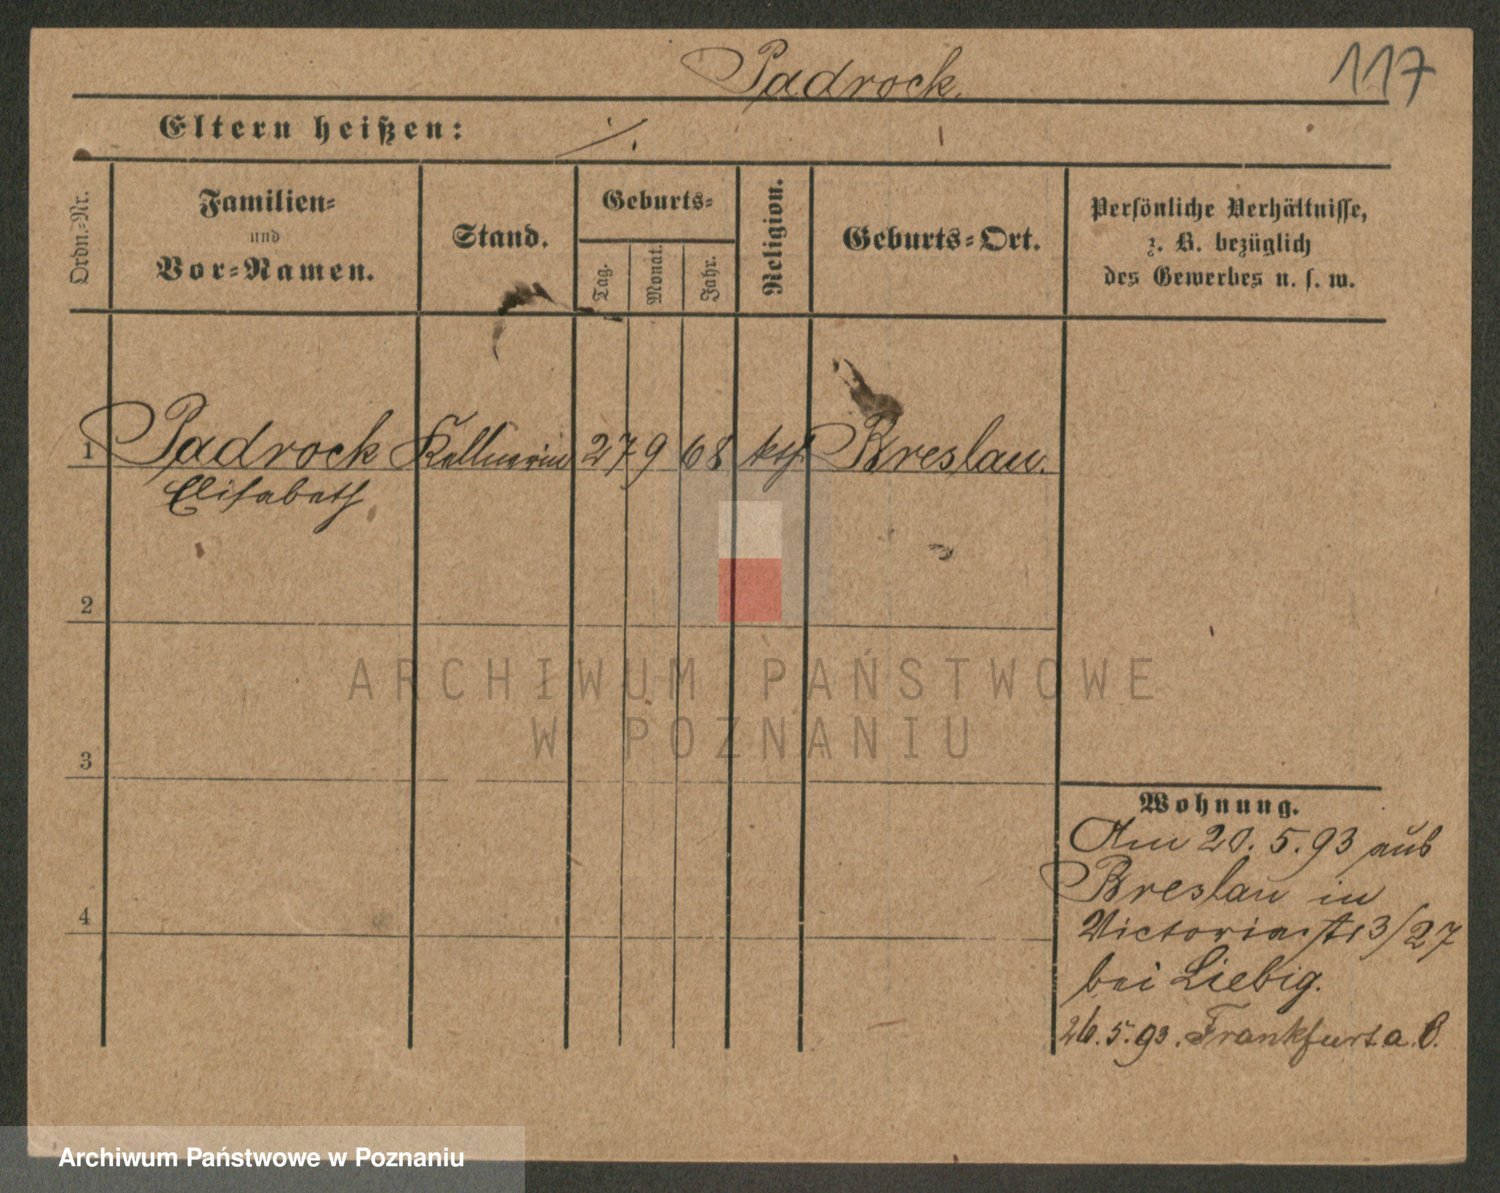 Padrock.
117
Eltern heißen: ./.
Ordn.-Nr.
Familien-
und
Vor-Namen.
Stand.
Geburts-
Tag.
Monat.
Jahr.
Religion.
Geburts-Ort.
Persönliche Verhältnisse,
z. B. bezüglich
des Gewerbes u. s. w.
1 Padrock Kellnerin 27 9 68 kth Breslau.
Elisabeth
2
3
4
ARCHIWUM PAŃSTWOWE
W POZNANIU
Wohnung.
Am 20.5.93 aus
Breslau in
Victoriastr 3/27
bei Liebig.
26.5.93. Frankfurt a. O.
Archiwum Państwowe w Poznaniu